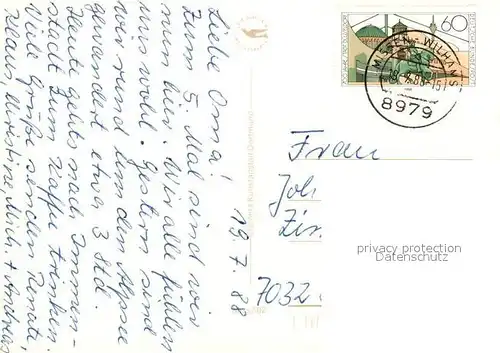 Liebe Oma!
19.7.88
Zum 5. Mal sind wir
nun hier. Wir alle fühlen
uns wohl. Gestern sind
wir rund um den Alpsee
gewandert etwa 3 Std.
Heute gehts nach Immen-
stadt zum Kaffee trinken.
Viele Grüße senden Renate,
Klaus, Christine, Mich. + Andreas
60
MISSEN-WILHAMS
8979
Frau
Joh
Zim
7032
privacy protection
Datenschutz